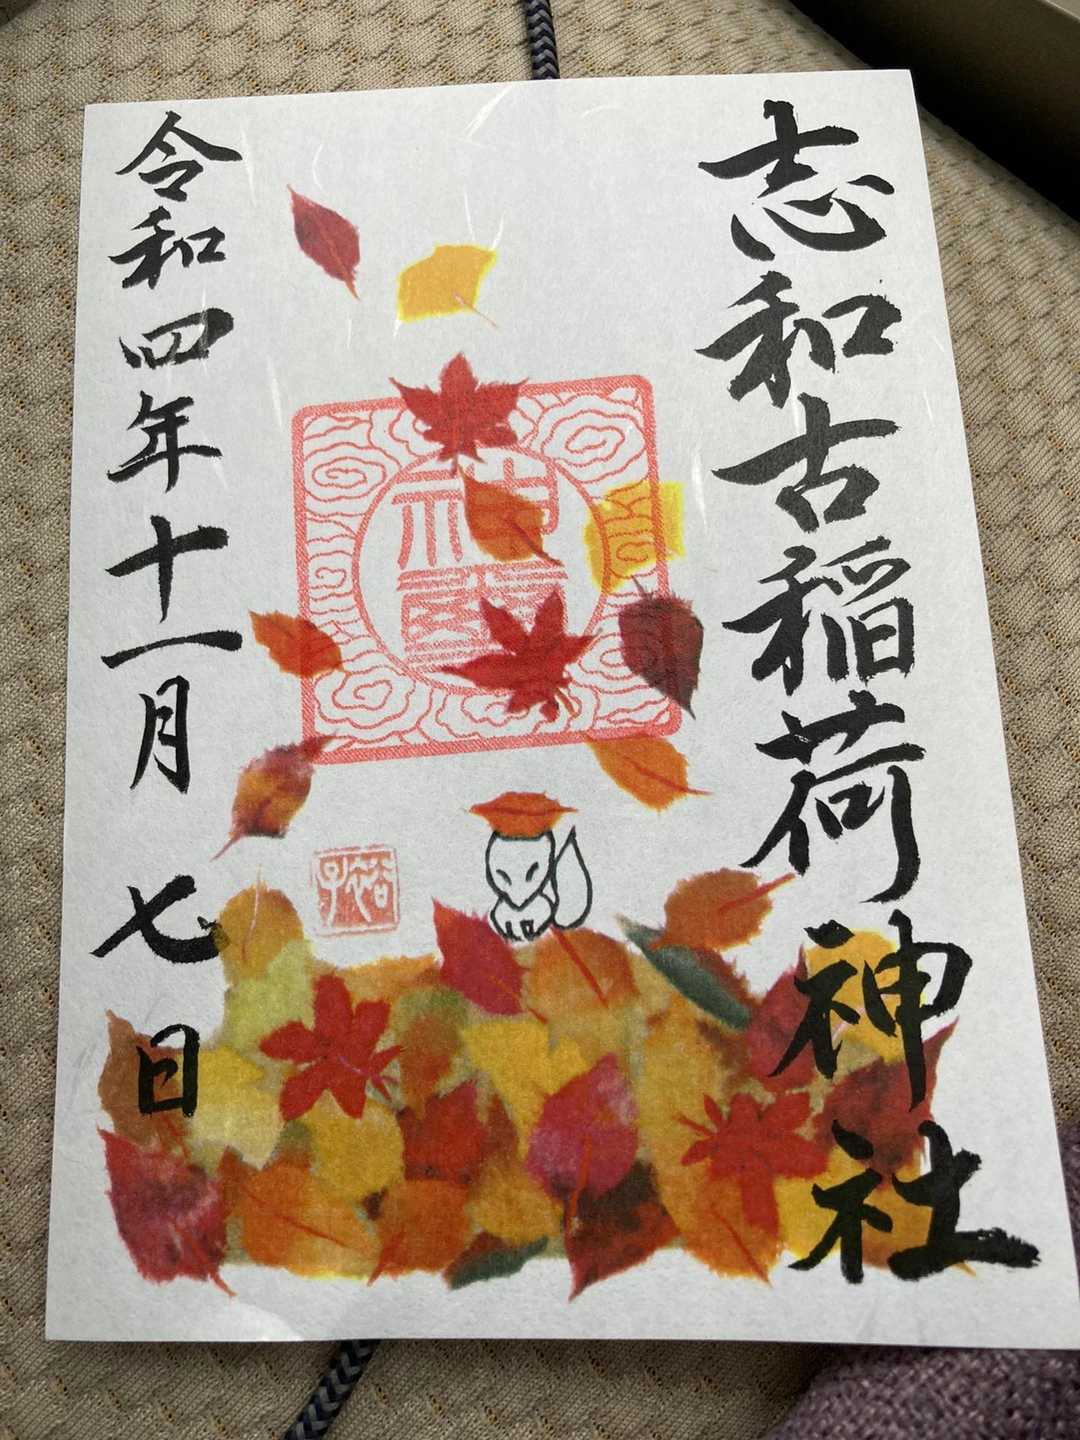 志和古稲荷神社
神璽
令和四年十一月七日